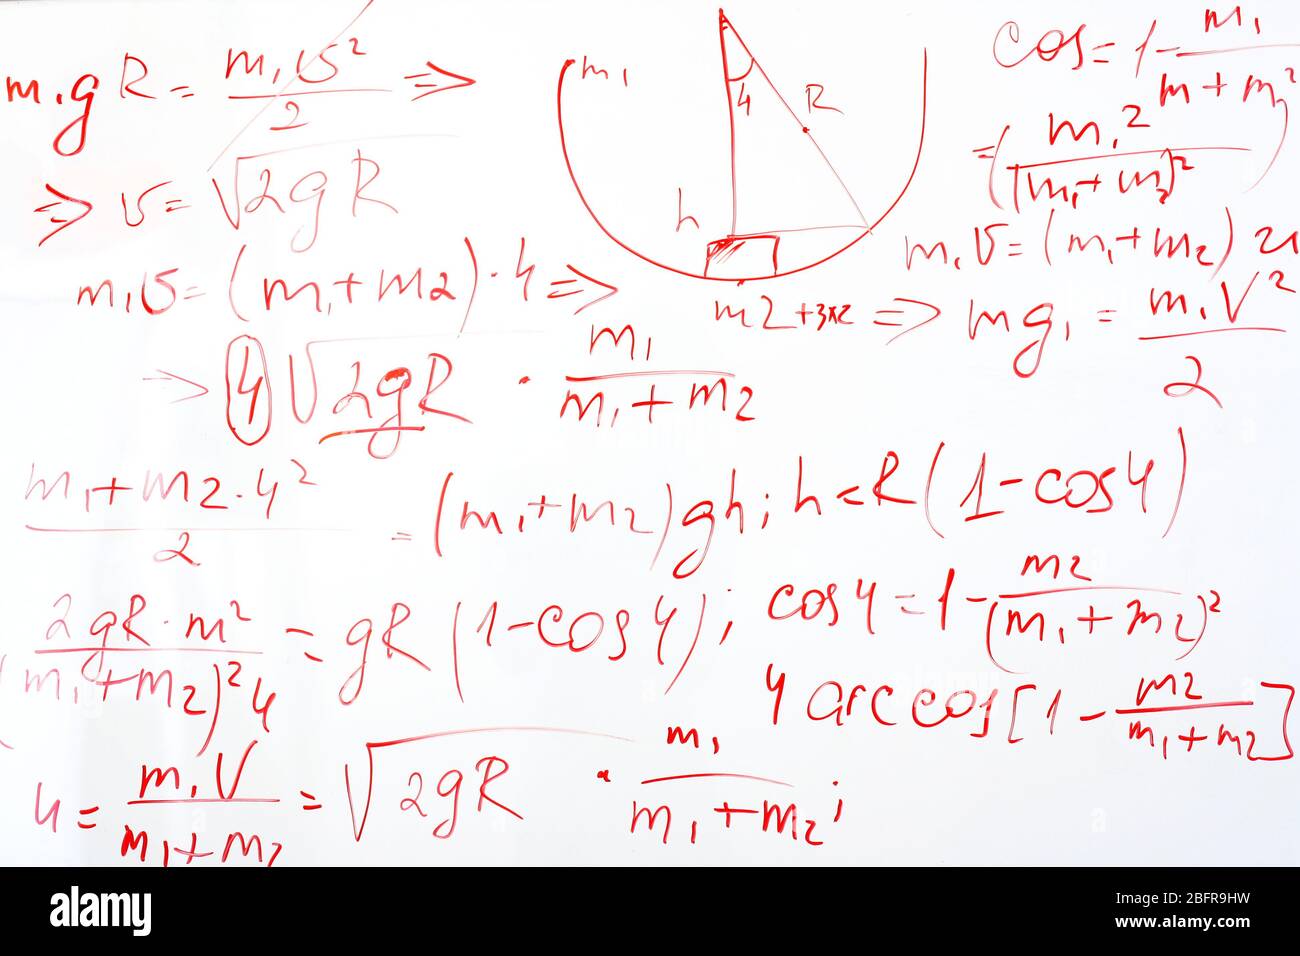 m₁gR = m₁υ²/2 ⇒
⇒ υ = √2gR
m₁υ = (m₁+m2)·4 ⇒
⇒ 4 √2gR · m₁/(m₁+m2)
m₁
4
R
h
m2+3x2 ⇒ mg₁ = m₁V²/2
cos = 1 - m₁/(m+m2
= (m₁²/(m₁+m2)²
m₁υ = (m₁+m2) 2u
m₁+m2·4²/2 = (m₁+m2)gh; h = R(1-cos4)
2gR·m²/(m₁+m2)²4 = gR(1-cos4); cos4 = 1 - m2/(m₁+m2)²
4 arccos[1 - m2/(m₁+m2)]
4 = m₁V/(m₁+m2) = √2gR · m₁/(m₁+m2);
alamy
Image ID: 2BFR9HW
www.alamy.com